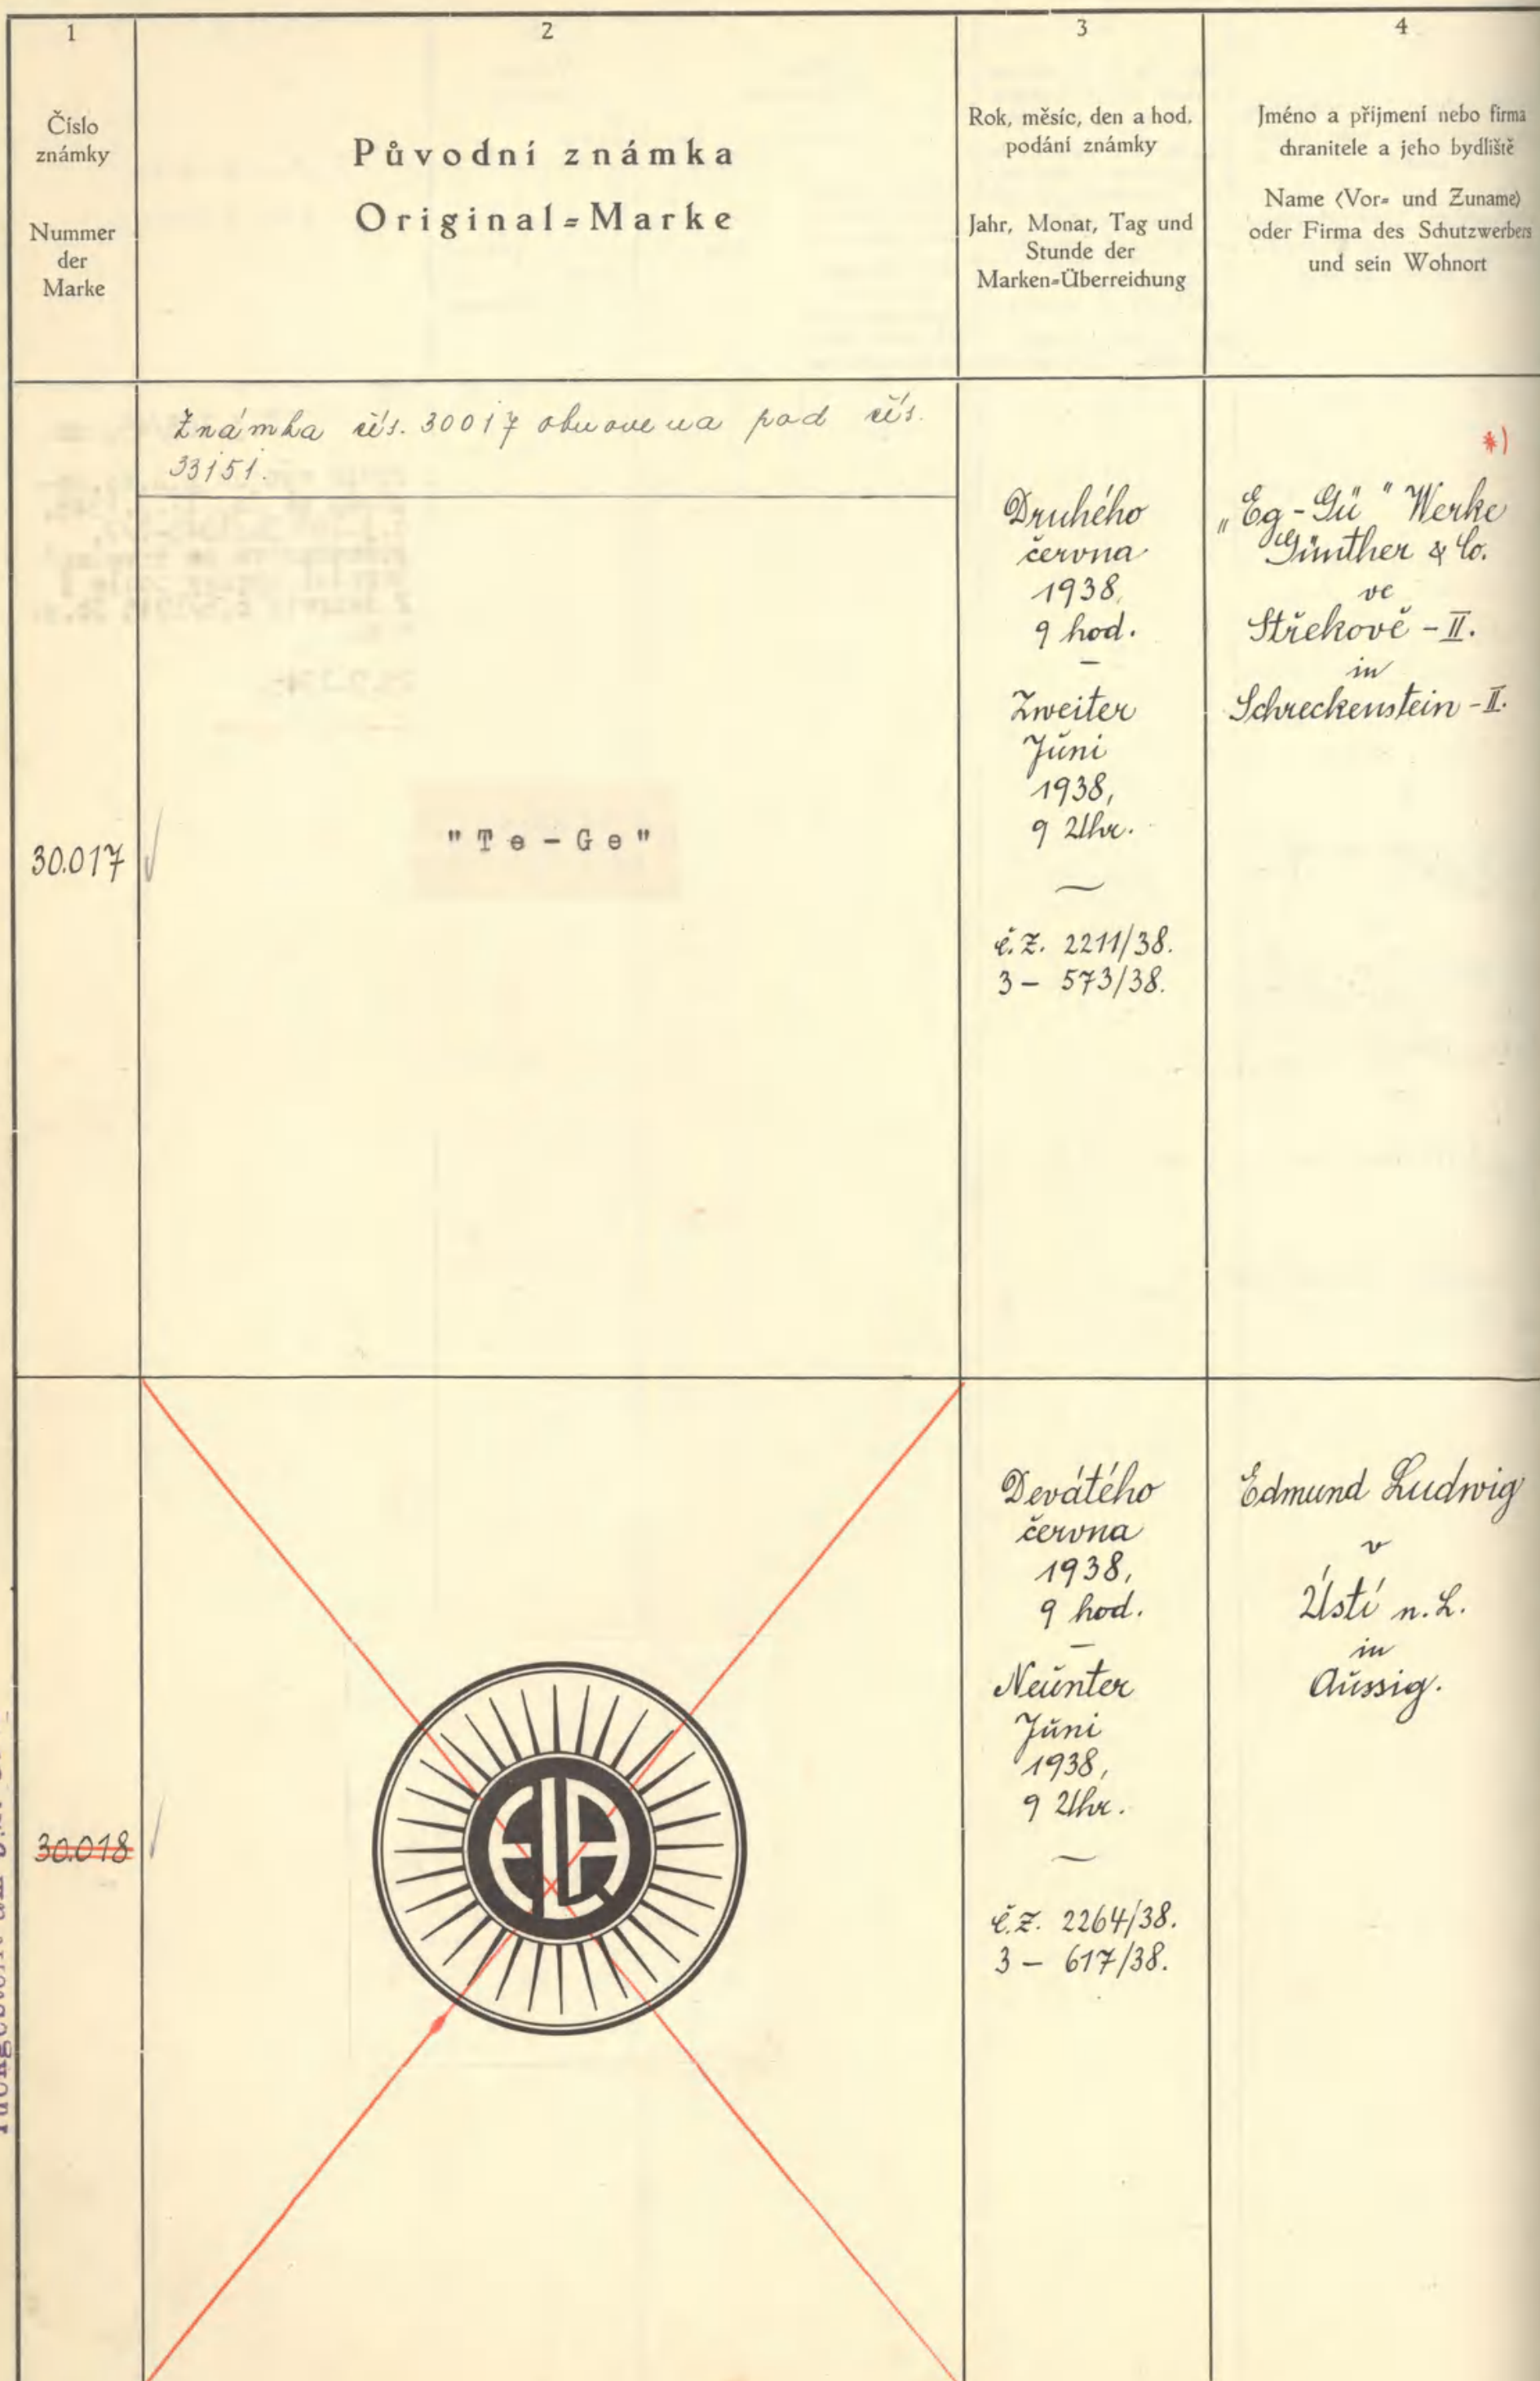 1
Číslo
známky
Nummer
der
Marke
2
Původní známka
Original=Marke
3
Rok, měsíc, den a hod.
podání známky
Jahr, Monat, Tag und
Stunde der
Marken=Überreichung
4
Jméno a příjmení nebo firma
chranitele a jeho bydliště
Name (Vor= und Zuname)
oder Firma des Schutzwerbers
und sein Wohnort
Známka čís. 30017 obnovena pod čís.
33151.
30.017
"Te-Ge"
Druhého
června
1938,
9 hod.
—
Zweiter
Juni
1938,
9 Uhr.
č.z. 2211/38.
3 – 573/38.
*)
„Eg-Gü" Werke
Günther & Co.
ve
Střekově-II.
in
Schreckenstein-II.
30.018
Devátého
června
1938,
9 hod.
—
Neunter
Juni
1938,
9 Uhr.
č.z. 2264/38.
3 – 617/38.
Edmund Ludwig
v
Ústí n.L.
in
Aussig.